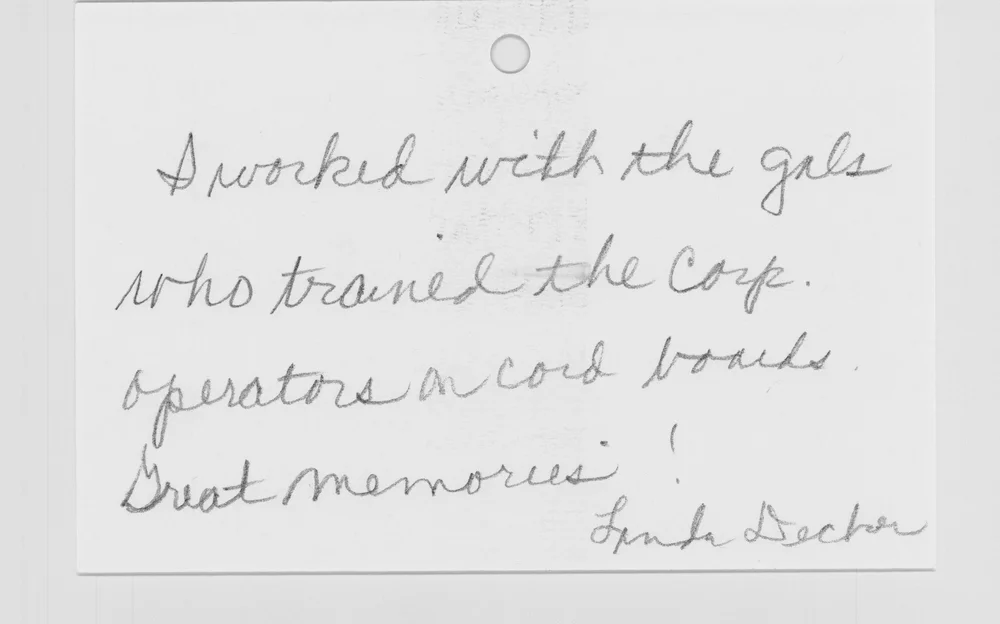 I worked with the gals
who trained the Corp.
operators on cord boards.
Great memories!
Linda Decker